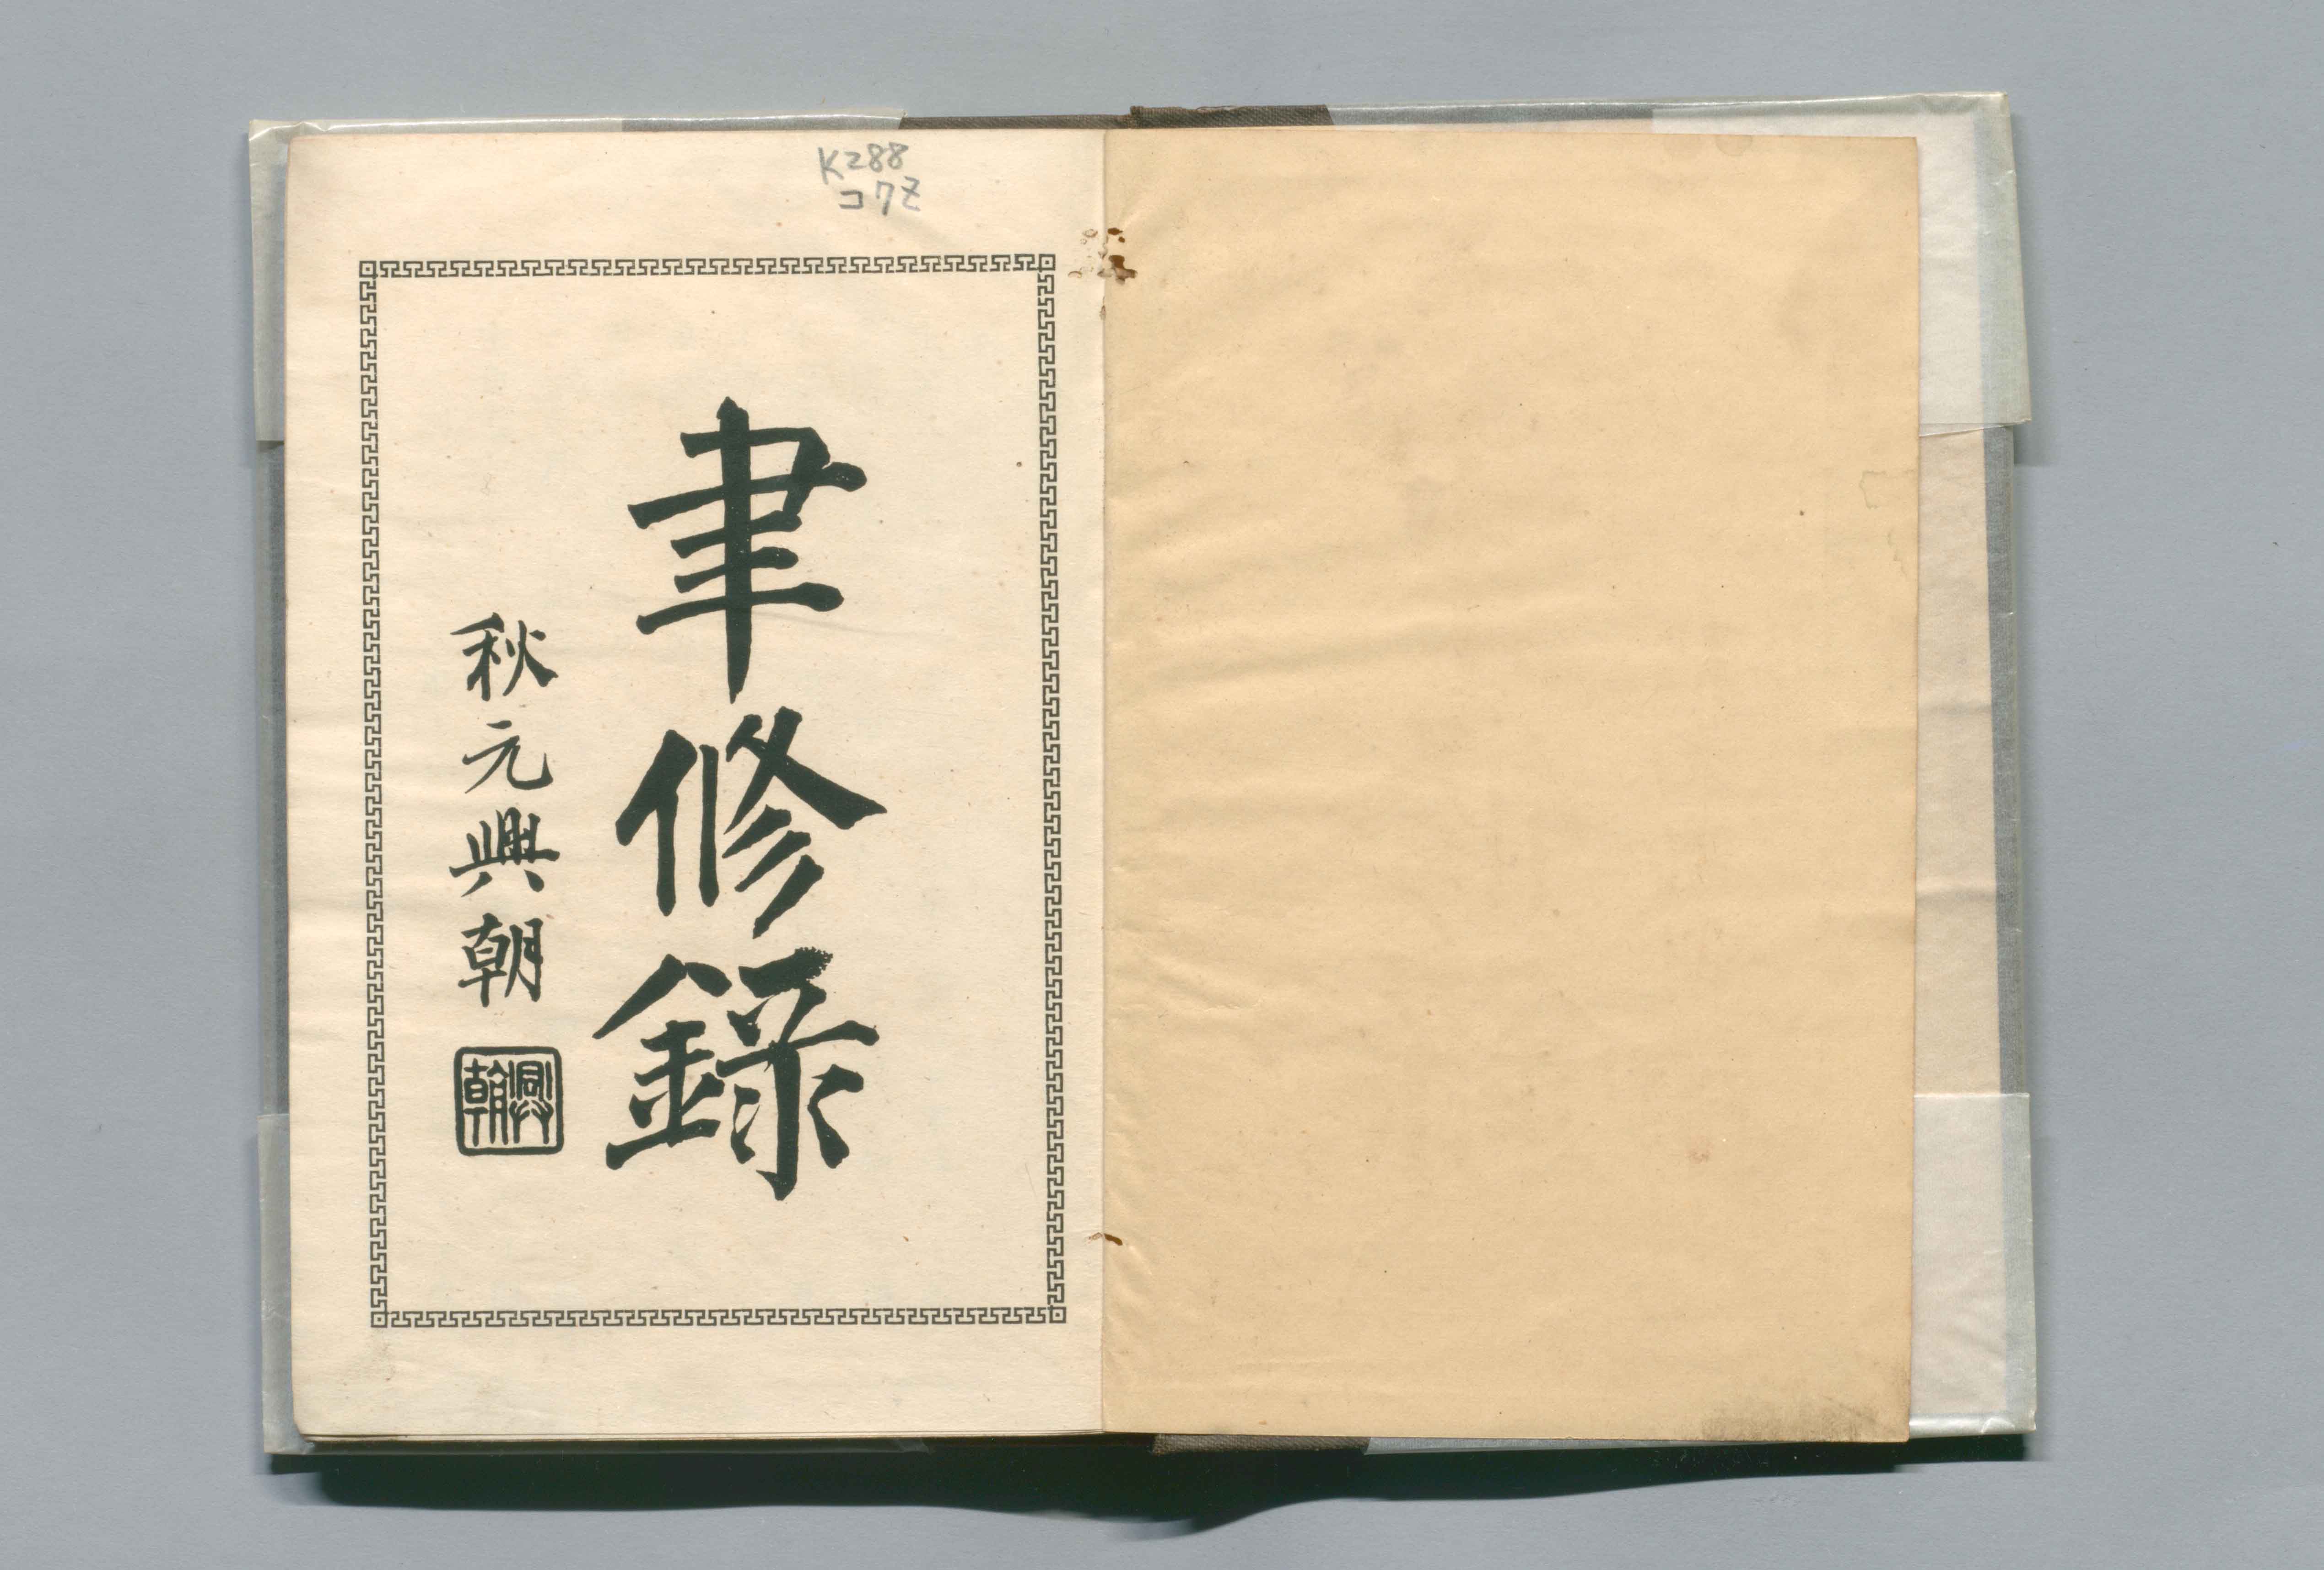 K288
コ72
聿修錄
秋元興朝
興朝